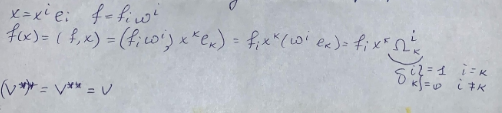 x = xⁱeᵢ f = fᵢωⁱ
f(x) = (f, x) = (fᵢωⁱ, xᵏeₖ) = fᵢxᵏ(ωⁱ eₖ) = fᵢxᵏ Ωⁱₖ
δⁱₖ} = 1 i = к
} = 0 i ≠ к
(V*)* = V** = V